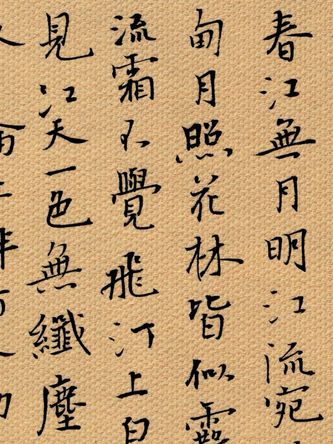 春江無月明江流宛
甸月照花林皆似霰
流霜不覺飛汀上白
見江天一色無纖塵